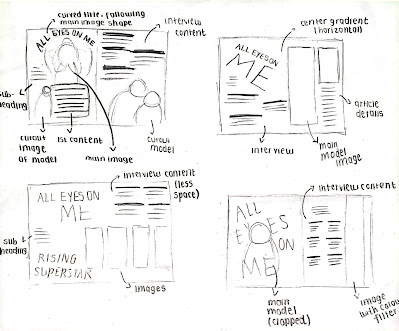 curved title, following
main image shape
interview
content
ALL EYES ON ME
sub-
heading
cutout
image
of model
1st content
main image
cutout
model
center gradient
(horizontal)
ALL EYES ON
ME
article
details
interview
main
model
image
interview content
(less
space)
ALL EYES ON
ME
sub
heading
RISING
SUPERSTAR
images
interview content
ALL
EYES
ON
ME
main
model
(cropped)
image
with colour
filter